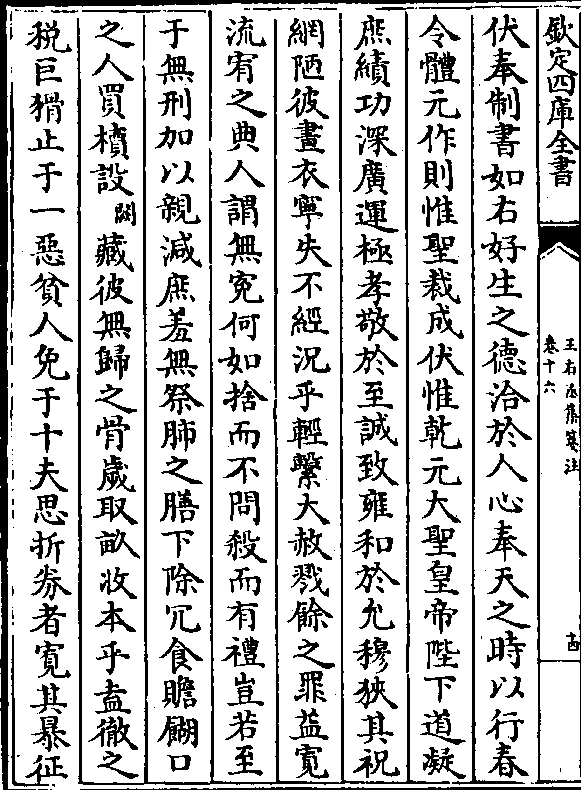 欽定四庫全書
王右丞集箋注
卷十六
古
伏奉制書如右好生之德洽於人心奉天之時以行春
令體元作則惟聖裁成伏惟乾元大聖皇帝陛下道凝
庶績功深廣運極孝敬於至誠致雍和於允穆狹其祝
網陋彼畫衣寧失不經況乎輕繫大赦戮餘之罪益寛
流宥之典人謂無寃何如捨而不問殺而有禮豈若至
于無刑加以親減庶羞無祭肺之膳下除冗食贍餬口
之人買櫝設闕藏彼無歸之骨歲取畝收本乎盍徹之
税巨猾止于一惡貧人免于十夫思折券者寛其暴征